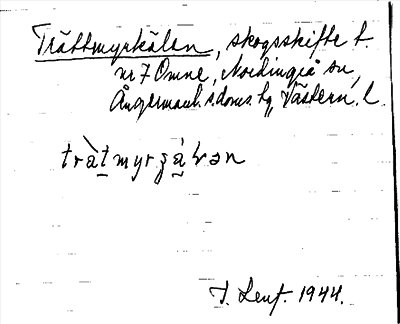 Trättmyrkälen, skogsskifte t.
nr 7 Omne, Nordingrå sn,
Ångermanl. s. doms. hg, Västern. l.
tràt myrʒálrən
J. Leuf. 1944.